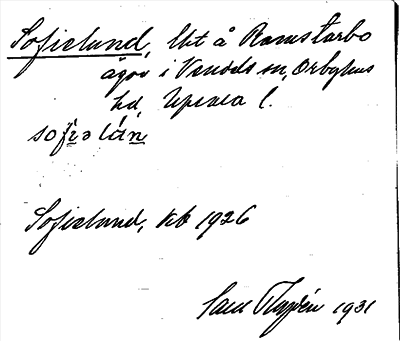 Sofielund, lht å Ramstarbo
ägor i Vendels sn, Örbyhus
hd, Upsala l.
sofiəlán
Sofielund, kb 1926
1931